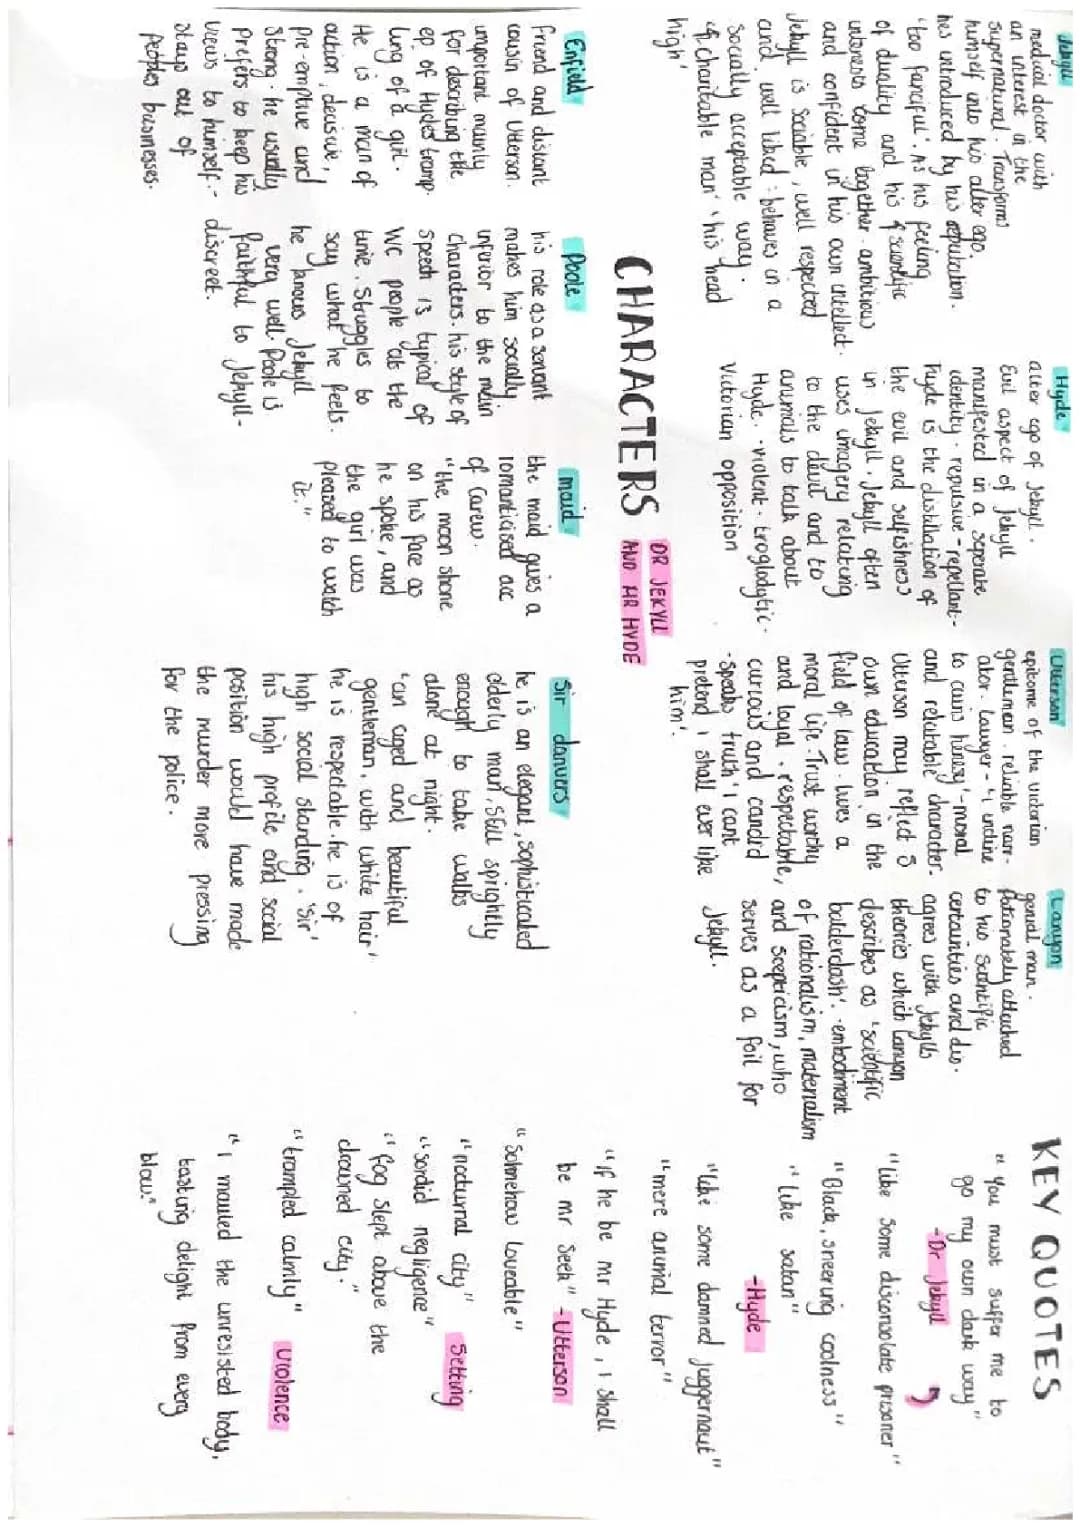 Jekyll
medical doctor with
an interest in the
supernatural. Transforms
himself into his alter ego.
hes introduced by his reputation.
'too fanciful'. As his feeling
of duality and his scientific
interests come together. ambitious
and confident in his own intellect.
Jekyll is sociable, well respected
and well liked - behaves in a
socially acceptable way.
'charitable man' 'his head
high'
Hyde
alter ego of Jekyll.
Evil aspect of Jekyll
manifested in a seperate
identity. repulsive - repellant -
Hyde is the distillation of
the evil and selfishness
in Jekyll. Jekyll often
uses imagery relating
to the devil and to
animals to talk about
Hyde. - violent - troglodytic -
Victorian opposition
Utterson
epitome of the victorian
gentleman. reliable narr-
ator. Lawyer - 'i incline
to cains heresy' - moral
and relatable character.
Utterson may reflect S
own education in the
field of law. lives a
moral life. Trust worthy
and loyal. respectable,
curious and candid
- speaks truth 'i cant
pretend i shall ever like
him'.
Lanyon
genial man.
Passionately attached
to his scientific
certainties and dis-
agrees with Jekylls
theories which Lanyon
describes as 'scientific
balderdash'. - embodiment
of rationalism, materialism
and scepticism, who
serves as a foil for
Jekyll.
CHARACTERS
DR JEKYLL
AND MR HYDE
Enfield
friend and distant
cousin of Utterson.
important mainly
for describing the
ep. of Hydes tramp-
ling of a girl.
He is a man of
action, decisive,
pre-emptive and
strong. he usually
prefers to keep his
views to himself. -
stays out of
peoples businesses.
Poole
his role as a servant
makes him socially
inferior to the main
characters. his style of
speech is typical of
WC people at the
time. Struggles to
say what he feels.
he knows Jekyll
very well. Poole is
faithful to Jekyll -
discreet.
maid
the maid gives a
romanticised acc
of Carew.
"the moon shone
on his face as
he spoke, and
the girl was
pleased to watch
it."
Sir danvers
he is an elegant, sophisticated
elderly man, still sprightly
enough to take walks
alone at night.
'an aged and beautiful
gentleman, with white hair'
he is respectable. he is of
high social standing. 'Sir'
his high profile and social
position would have made
the murder more pressing
for the police.
KEY QUOTES
"You must suffer me to
go my own dark way"
-Dr Jekyll
"like some disconsolate prisoner"
"Black, sneering coolness"
"like satan"
-Hyde
"like some damned juggernaut"
"mere animal terror"
"if he be mr Hyde, i shall
be mr Seek" -Utterson
"somehow loveable"
"nocturnal city" Setting
"sordid negligence"
"fog slept above the
drowned city."
"trampled calmly" Violence
"i mauled the unresisted body,
tasting delight from every
blow."